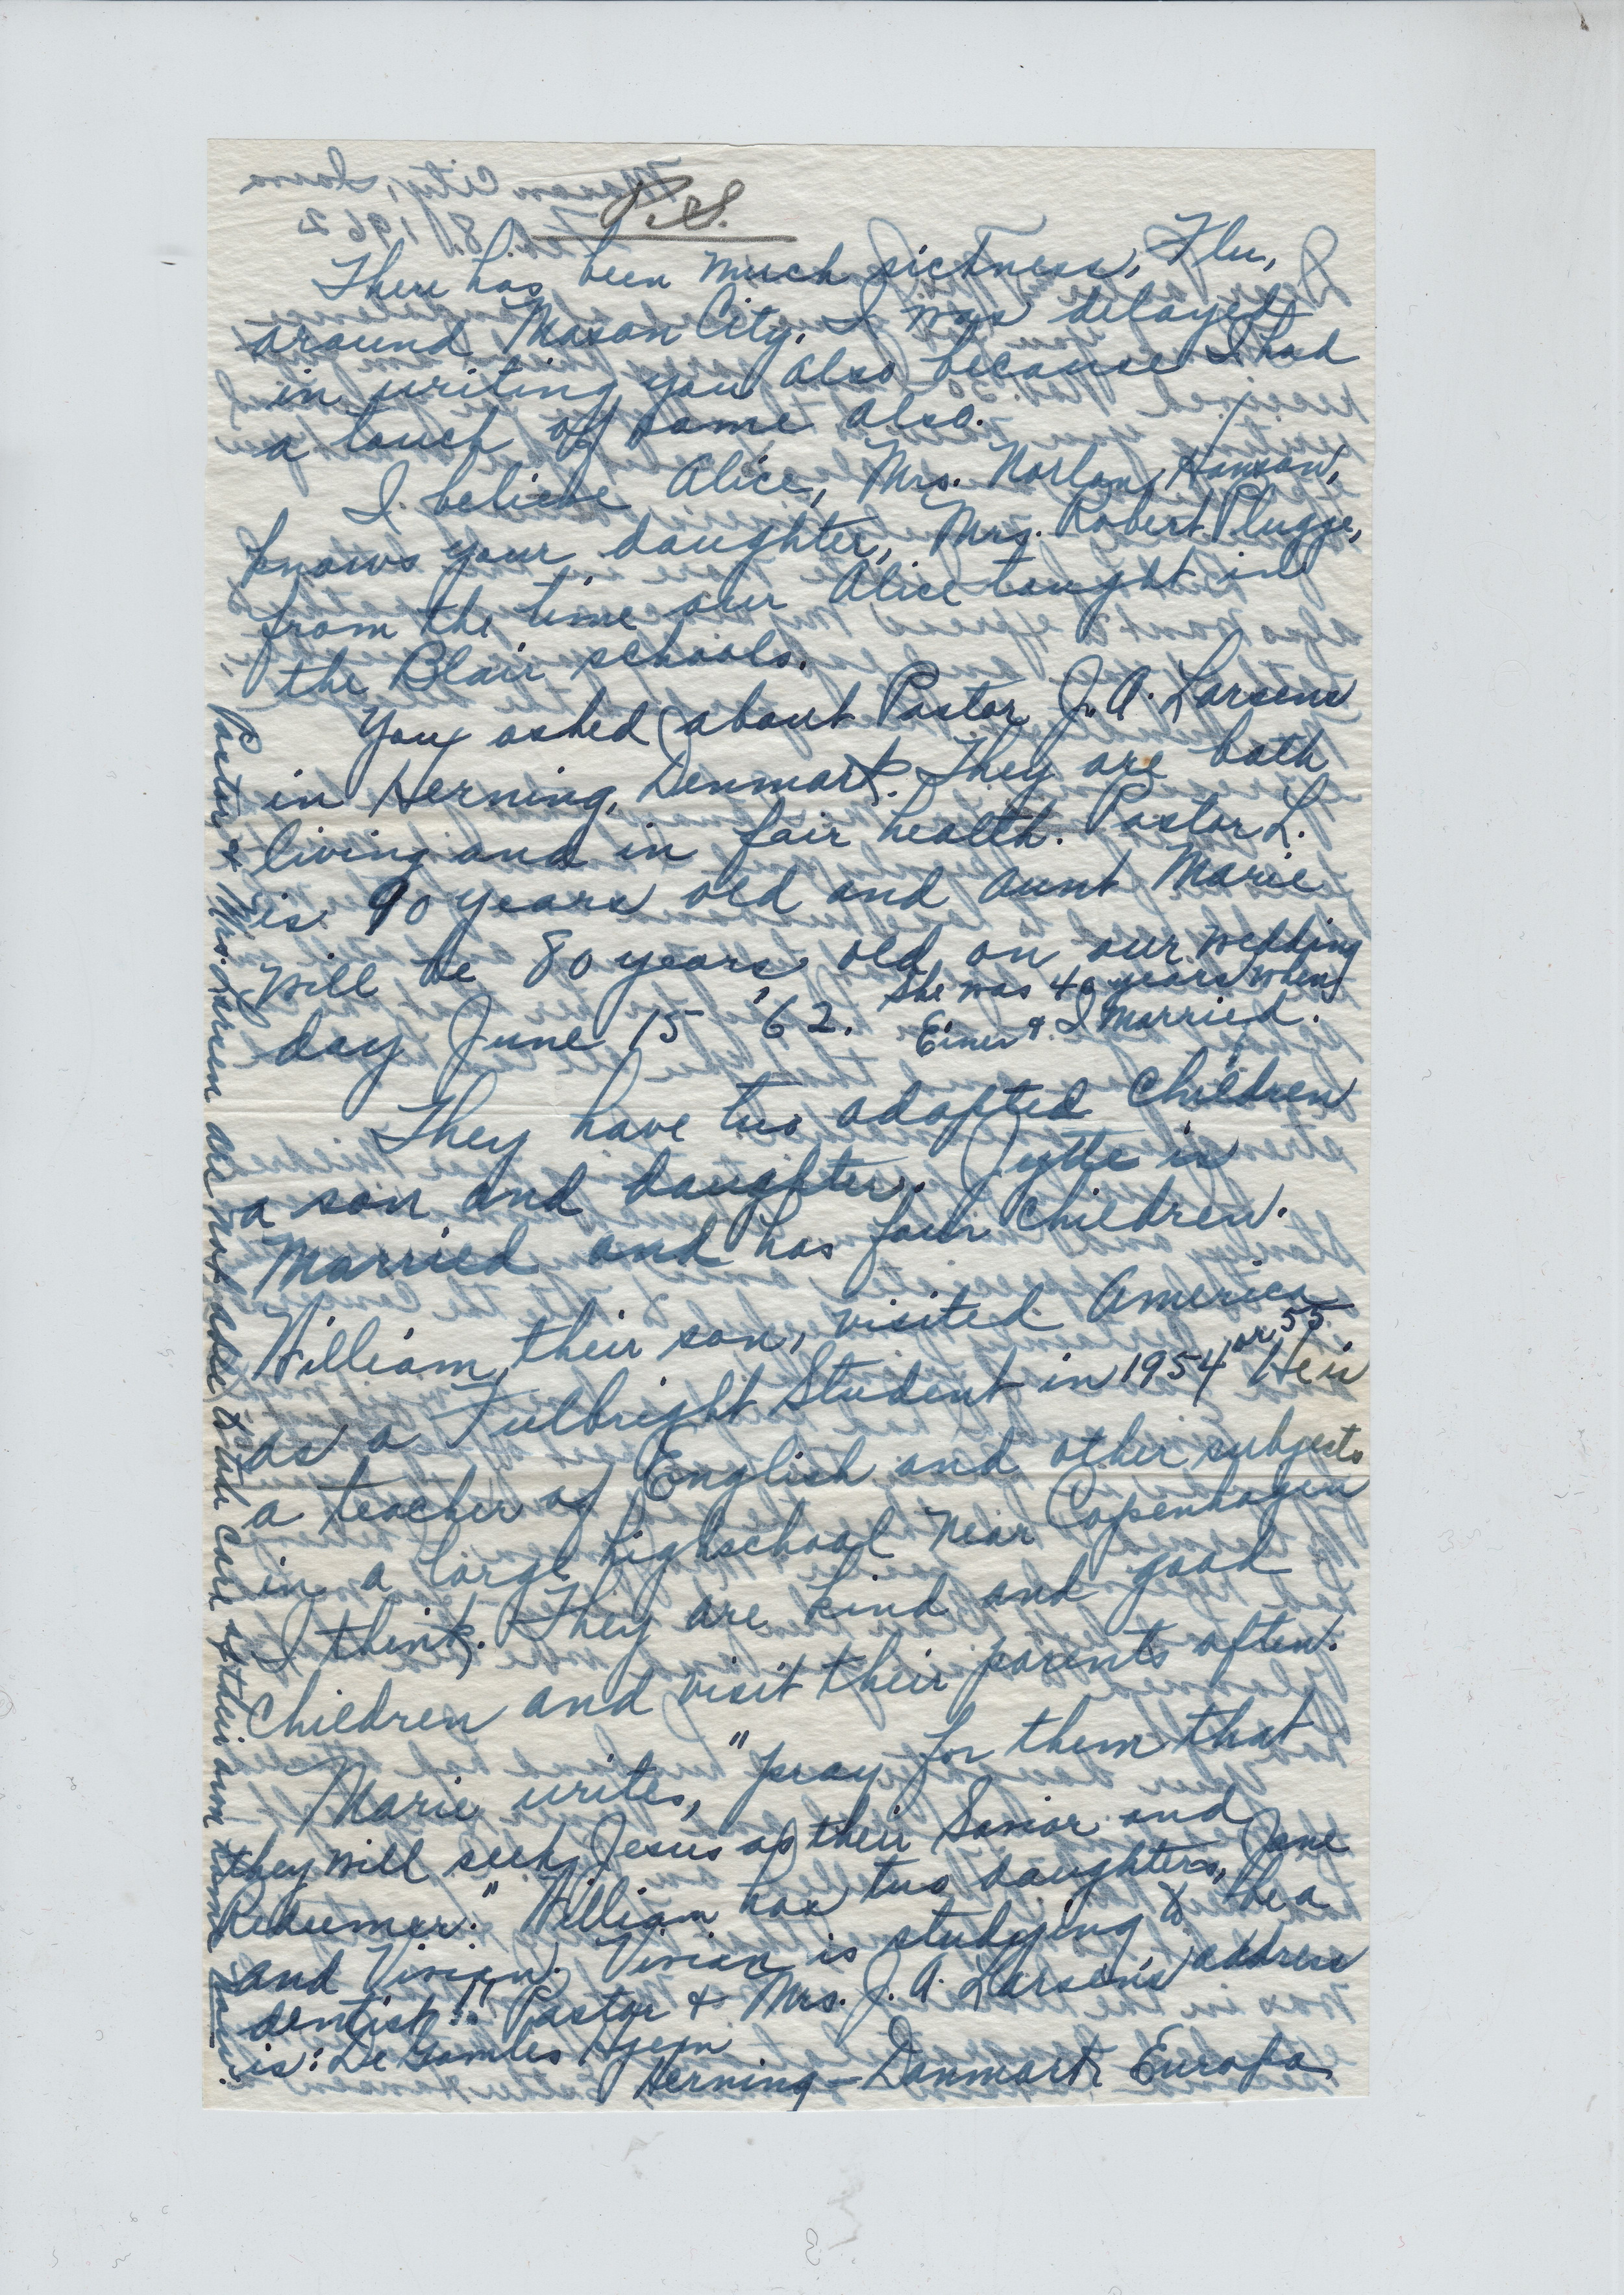 P.S.
There has been much sickness, Flu,
around Mason City. I was delayed
in writing you also because I had
a touch of same also.
I believe Alice, Mrs. Norlan Hanson,
knows your daughter, Mrs. Robert Plugge,
from the time our Alice taught in
the Blair schools.
You asked about Pastor J. A. Larsens
in Herning, Denmark. They are both
living and in fair health. Pastor L.
is 90 years old and aunt Marie
will be 80 years old on our wedding
day June 15 '62. She was 40 years when
Einer & I married.
They have two adopted children
a son and daughter. Jytte is
married and has four children.
William, their son, visited America
as a Fulbright Student in 1954 or 55. He is
a teacher of English and other subjects
in a large highschool near Copenhagen
I think. They are kind and good
children and visit their parents often.
Marie writes, "pray for them that
they will seek Jesus as their Savior and
Redeemer." William has two daughters, Jane
and Vivian. Vivian is studying to be a
dentist!! Pastor & Mrs. J. A. Larsen's address
is: De Gamles Hjem
Herning - Danmark Europa
Pastor & Mrs. Larsen are not able to take care of their own home